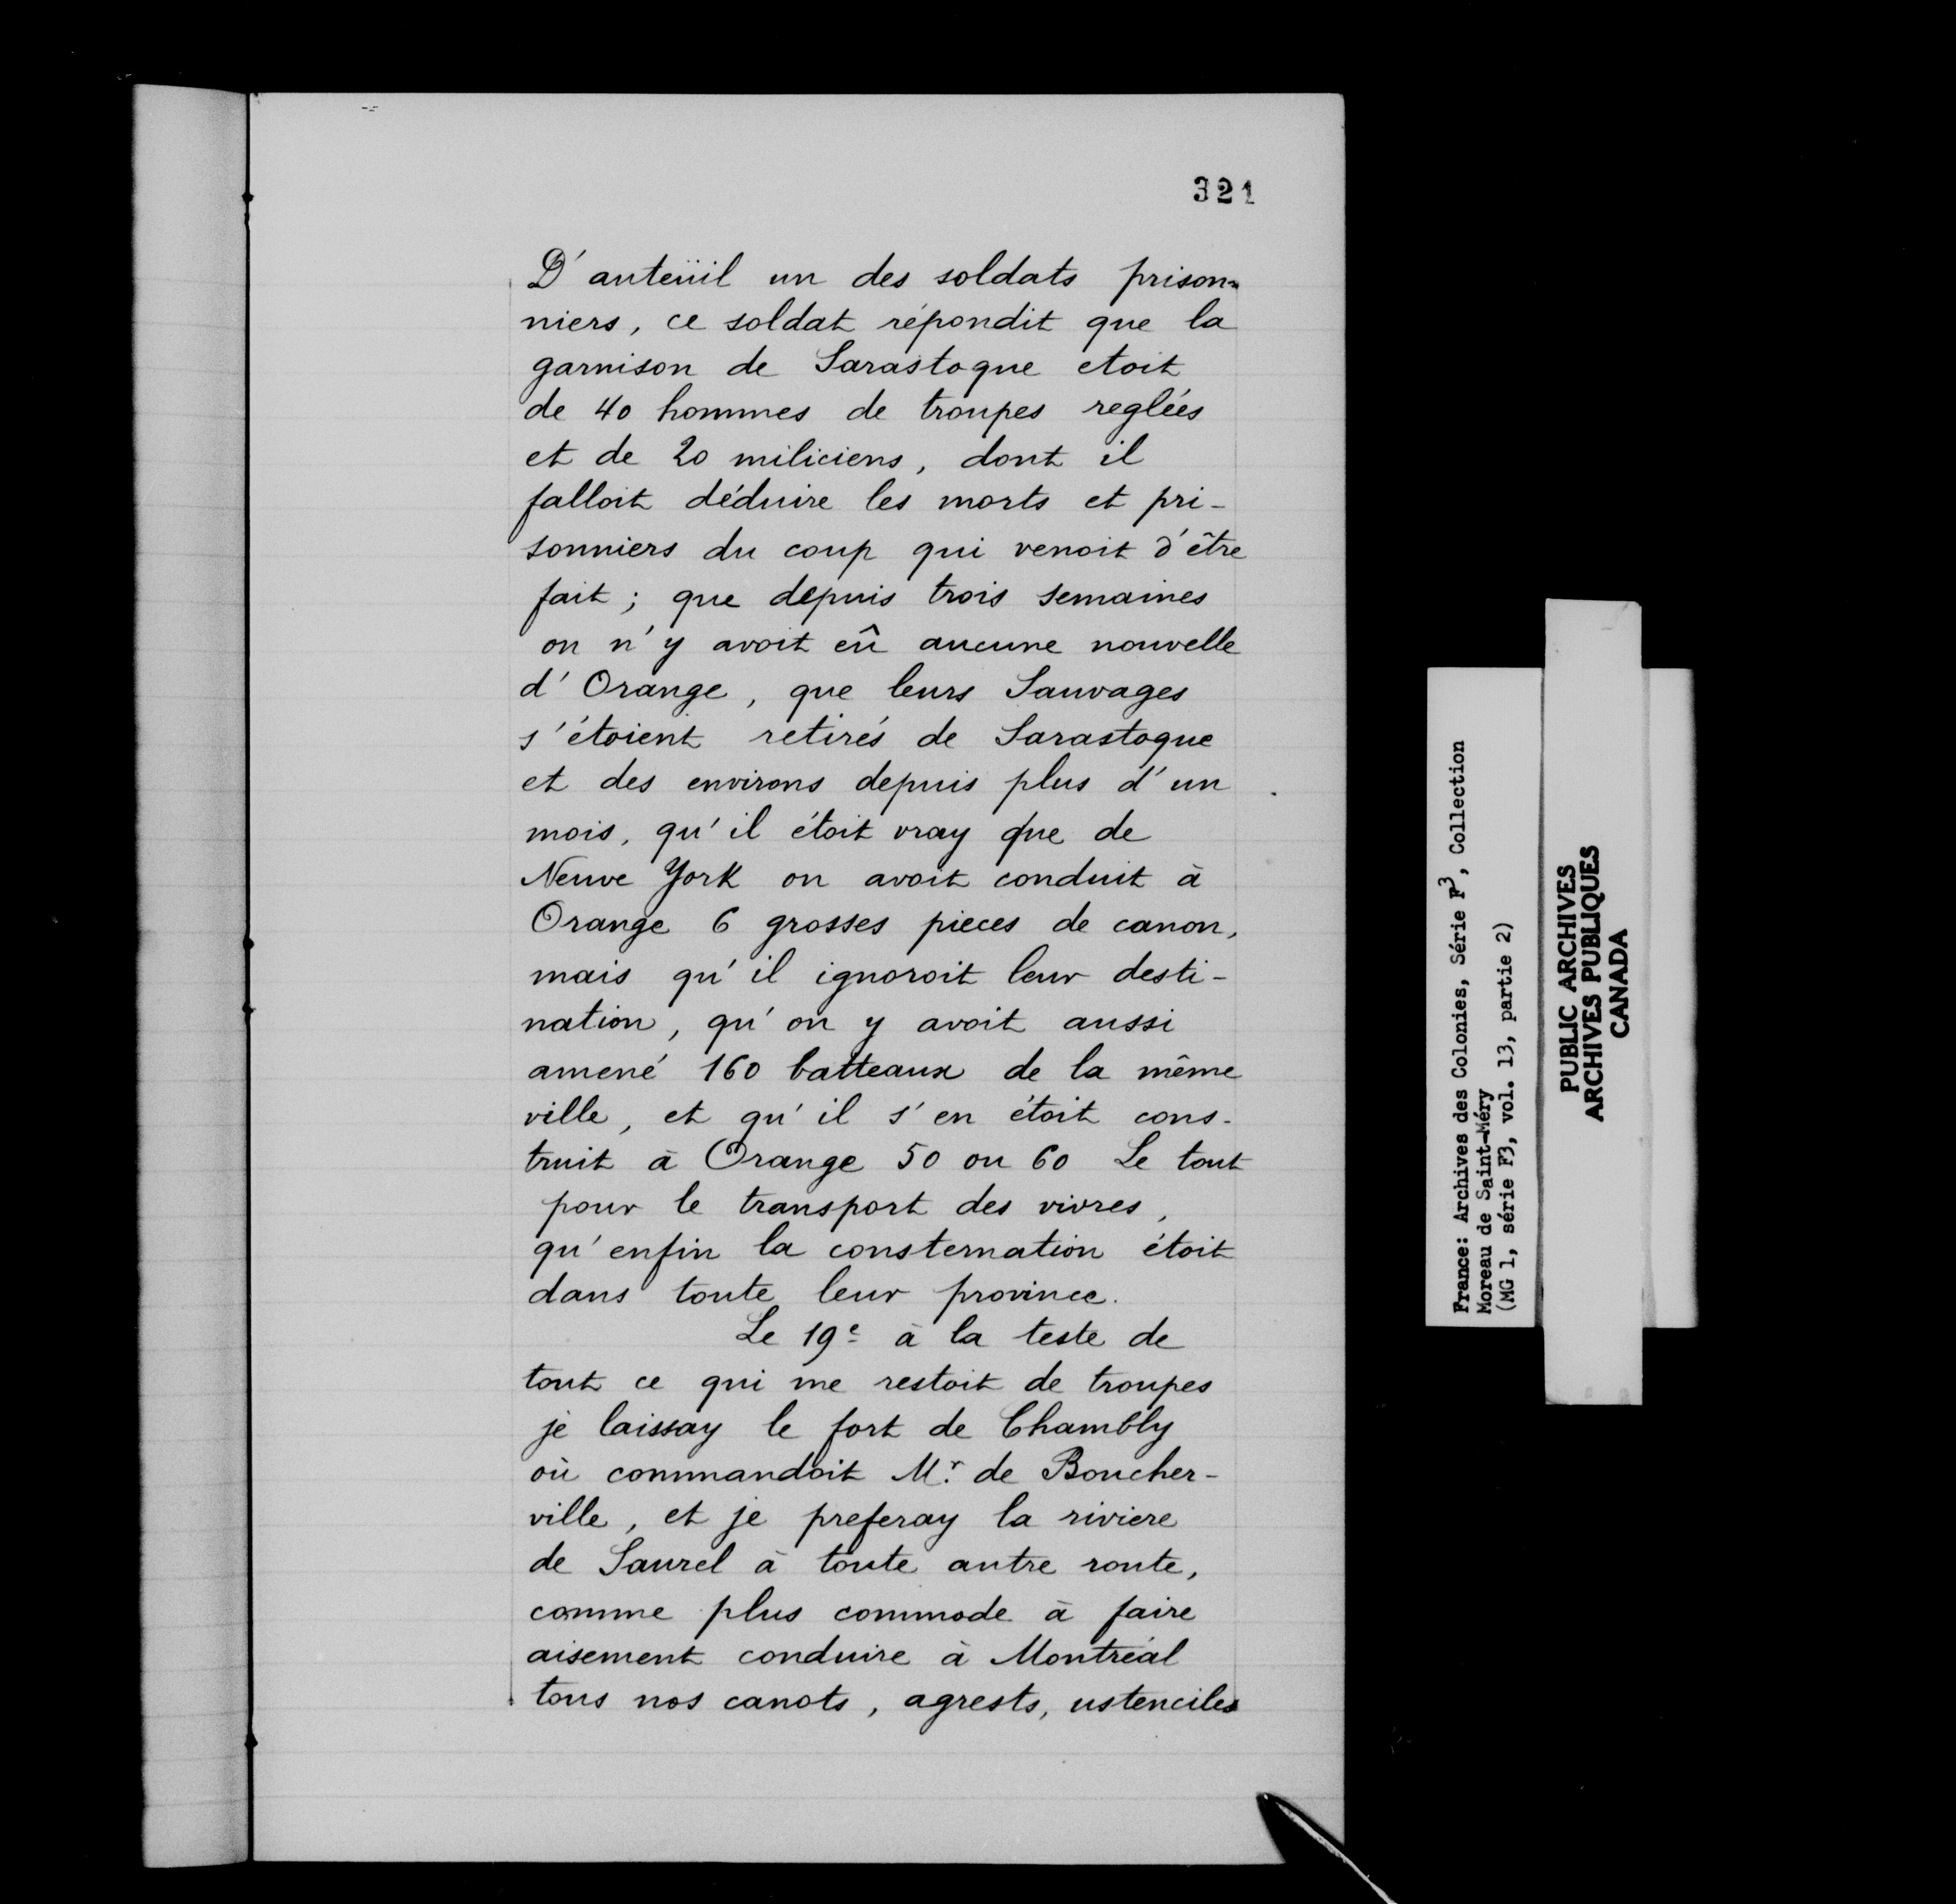 321
D'anteüil un des soldats prison=
niers, ce soldat répondit que la
garnison de Sarastogue etoit
de 40 hommes de troupes reglées
et de 20 miliciens, dont il
falloit déduire les morts et pri-
sonniers du coup qui venoit d'être
fait; que depuis trois semaines
on n'y avoit eû aucune nouvelle
d'Orange, que leurs Sauvages
s'étoient retirés de Sarastogue
et des environs depuis plus d'un
mois, qu'il étoit vray que de
Neuve York on avoit conduit à
Orange 6 grosses pieces de canon,
mais qu'il ignoroit leur desti-
nation, qu'on y avoit aussi
amené 160 batteaux de la même
ville, et qu'il s'en étoit cons-
truit à Orange 50 ou 60 Le tout
pour le transport des vivres,
qu'enfin la consternation étoit
dans toute leur province.
Le 19e à la teste de
tout ce qui me restoit de troupes
je laissay le fort de Chambly
où commandoit Mr. de Boucher-
ville, et je preferay la riviere
de Saurel à toute autre route,
comme plus commode à faire
aisement conduire à Montréal
tous nos canots, agrests, ustenciles
France: Archives des Colonies, Série F3, Collection
Moreau de Saint-Méry
(MG 1, série F3, vol. 13, partie 2)
PUBLIC ARCHIVES
ARCHIVES PUBLIQUES
CANADA